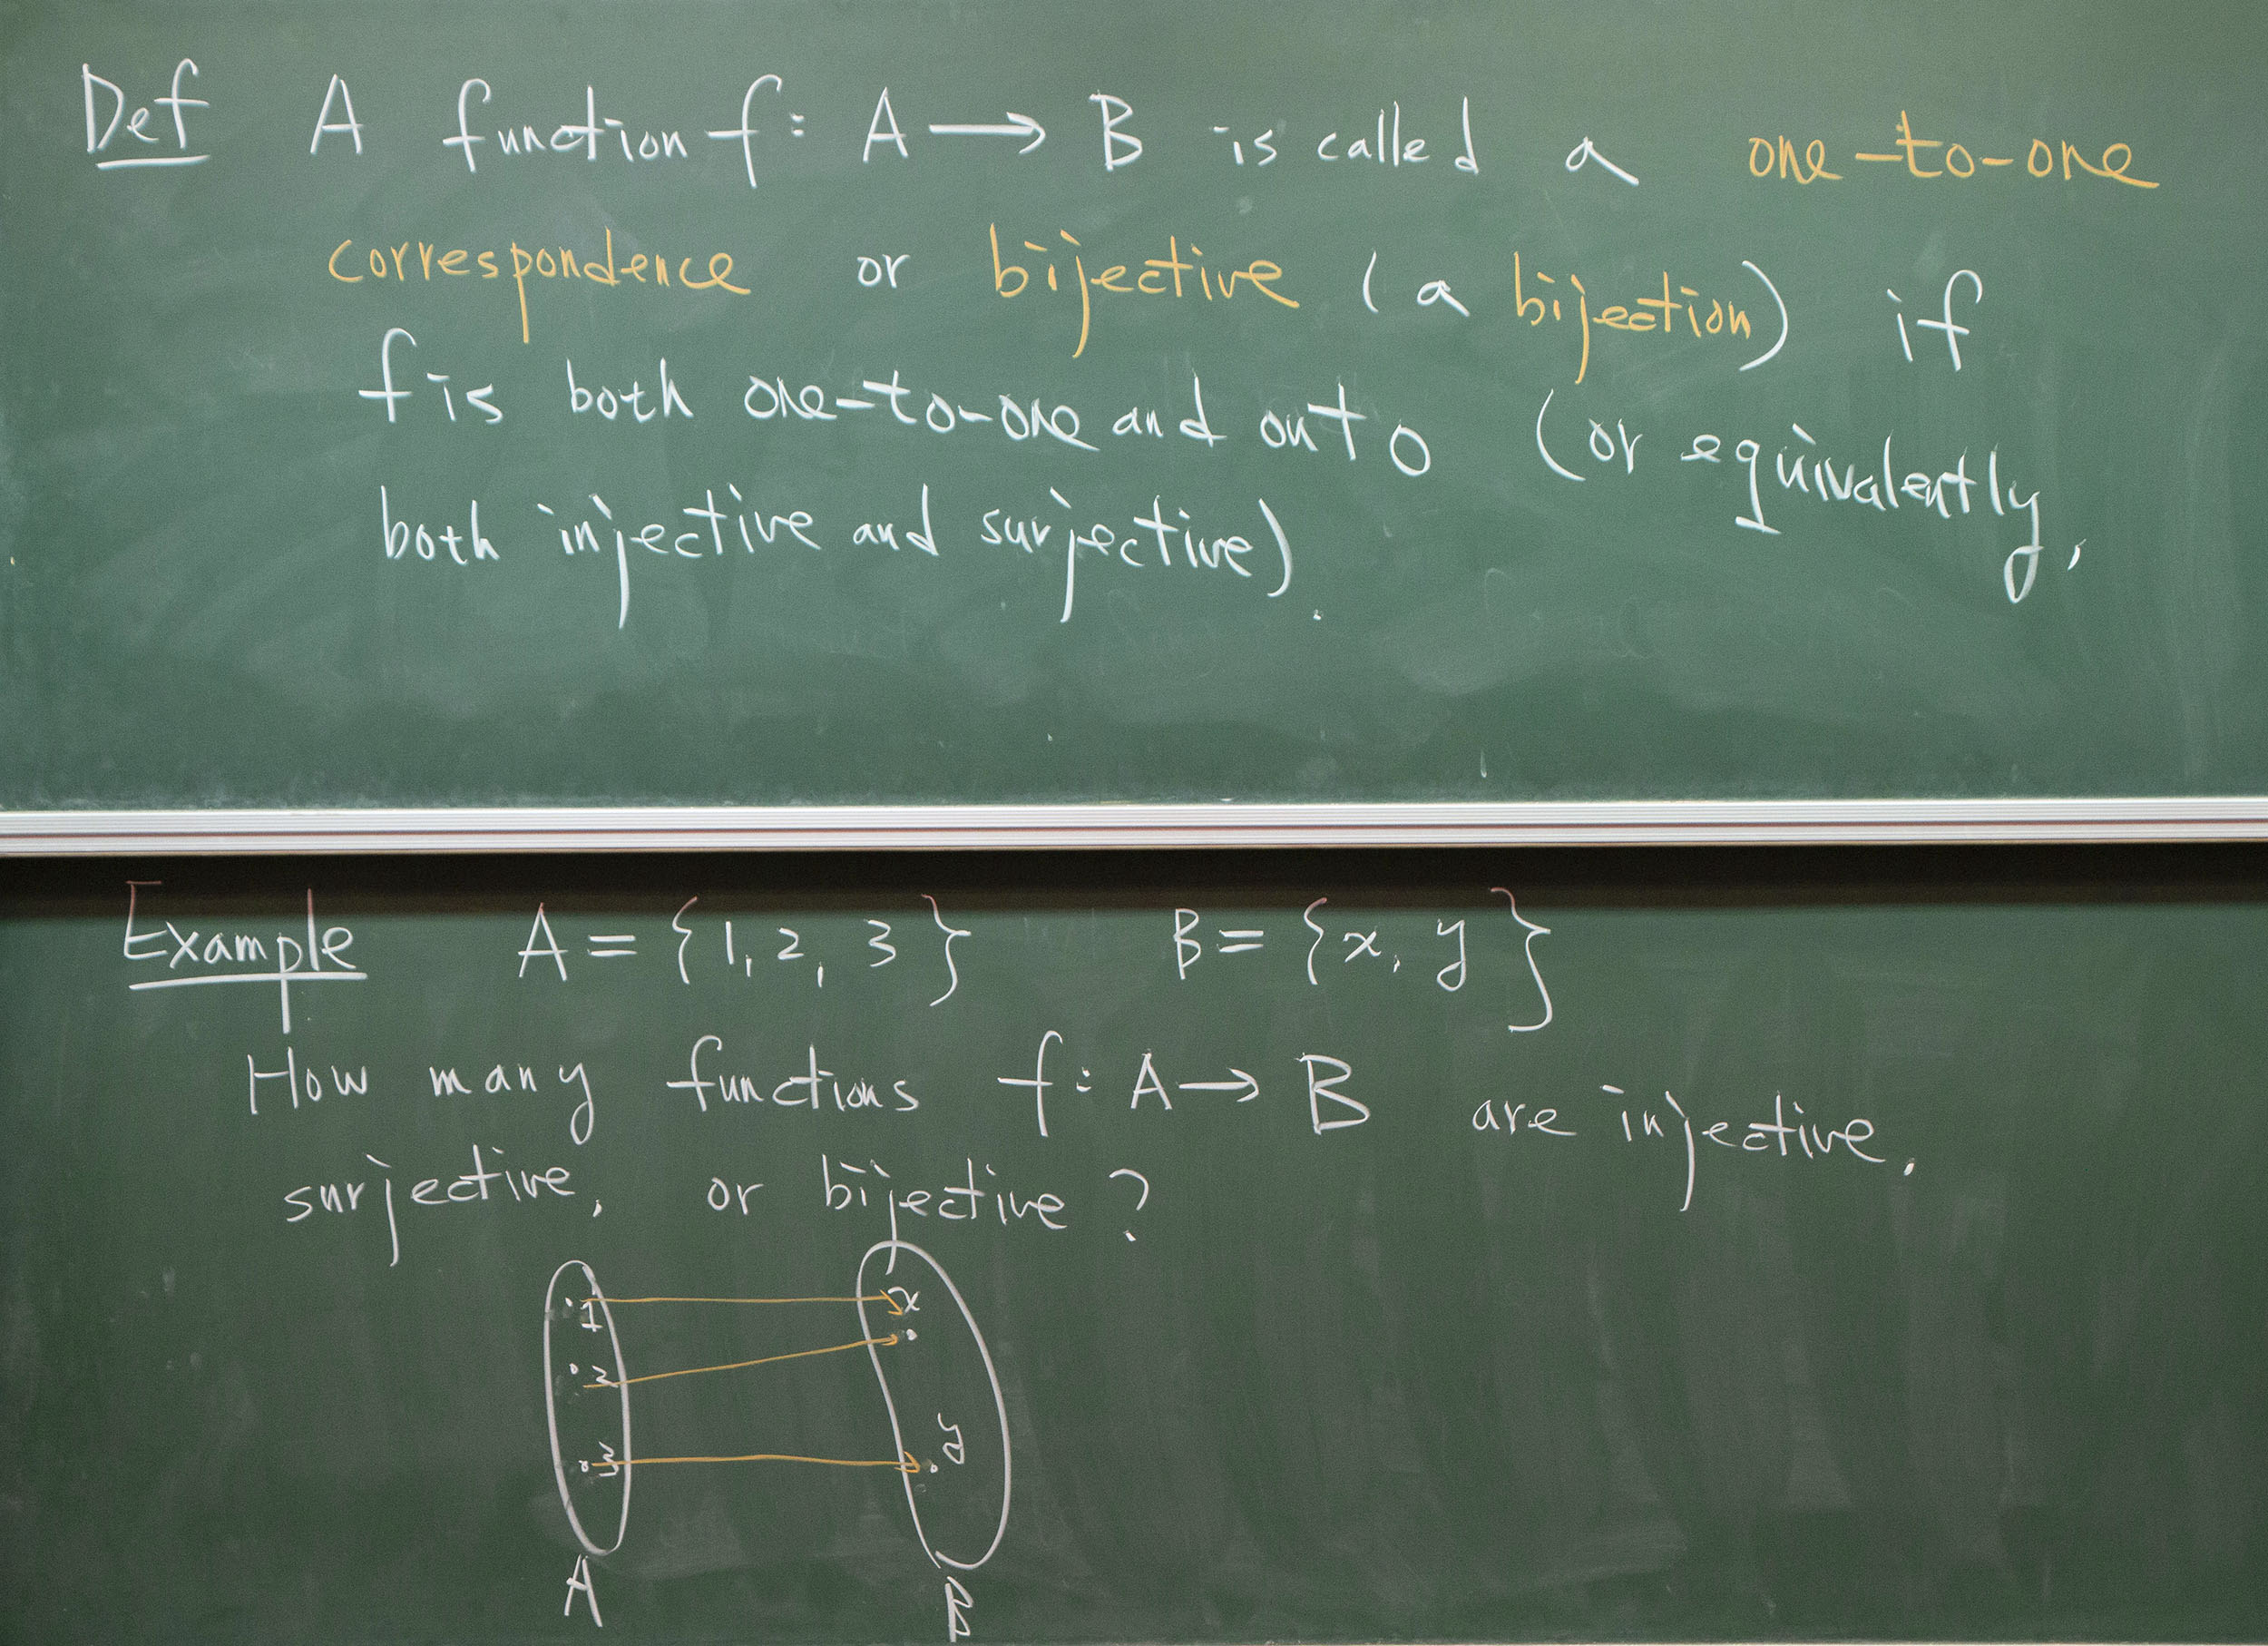 Def A function f: A → B is called a one-to-one
correspondence or bijective (a bijection) if
f is both one-to-one and onto (or equivalently,
both injective and surjective).
Example A = {1, 2, 3} B = {x, y}
How many functions f: A → B are injective,
surjective, or bijective?
1 x
2
3 y
A B